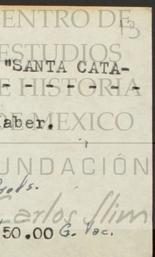 CENTRO DE
13
ESTUDIOS
"SANTA CATA-
- - - - - - -
DE HISTORIA
aber.
MEXICO
FUNDACIÓN
Carlos Slim
50.00 G. Vac.